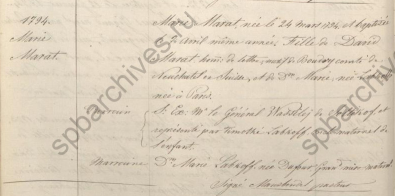 1794.
Marie
Marat.
Marie Marat, née le 24 mars 1794, et baptisée
le avril même année, Fille de David
Marat, homme de lettres, natif de Boudry comté de
Neuchatel en Suisse, et de Dme Marie, née
née à Paris.
Parrain
S. Ex. Mr le Général Wassilij de
représenté par Timothé Labzoff, oncle maternel de
l'enfant.
Marraine
Dme Marie Labzoff, née grand'mère
Signé pasteur
spbarchives.ru
spbarchives.ru